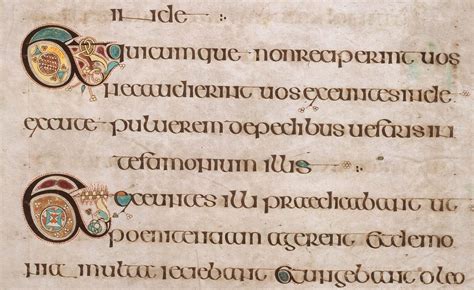 inde
Quicumque nonreciperint uos
necaudierint uos exeuntes inde
excute puluerem depedibus uestris in
testimonium illis
Exeuntes illi praedicabant ut
poenitentiam agerent Etdemo
nia multa ieciebant Etungebant oleo